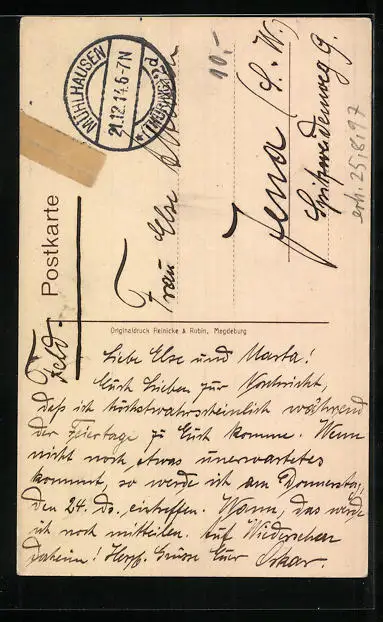 Feld-
Postkarte
MÜHLHAUSEN
21.12.14.6-7N
(THÜRINGEN)
10.-
Frau Else
Jena (S.-W.)
Spitzweidenweg 9.
erh. 25/8.97
Originaldruck Reinicke & Rubin, Magdeburg
Liebe Else und Marta!
Euch Lieben zur Nachricht,
daß ich höchstwahrscheinlich während
der Feiertage zu Euch komme. Wenn
nicht noch etwas unerwartetes
kommt, so werde ich am Donnerstag,
den 24. ds. eintreffen. Wann, das werde
ich noch mitteilen. Auf Wiedersehen
daheim! Herzl. Grüsse Euer Oskar.